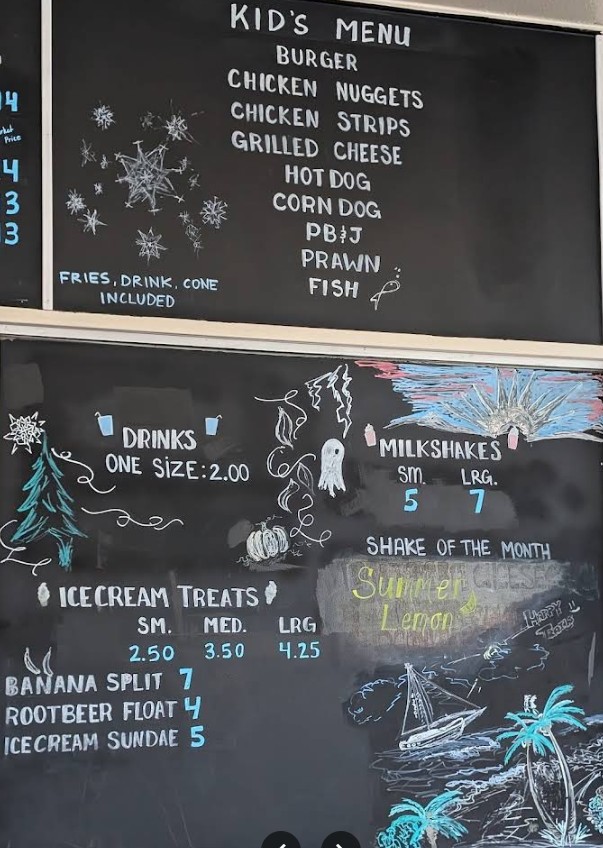 14
Price
4
3
13
KID'S MENU
BURGER
CHICKEN NUGGETS
CHICKEN STRIPS
GRILLED CHEESE
HOT DOG
CORN DOG
PB&J
PRAWN
FISH
FRIES, DRINK, CONE
INCLUDED
DRINKS
ONE SIZE: 2.00
MILKSHAKES
SM. LRG.
5 7
SHAKE OF THE MONTH
Summer
Lemon
HAPPY
ICE CREAM TREATS
SM. MED. LRG
2.50 3.50 4.25
BANANA SPLIT 7
ROOTBEER FLOAT 4
ICE CREAM SUNDAE 5